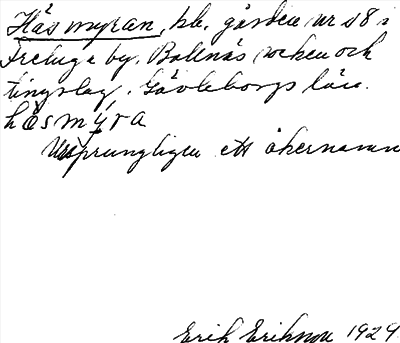 Håsmyran, bb. gården nr 58 i
Freluga by. Bollnäs socken och
tingslag. Gävleborgs län.
håsmýra
Ursprungligen ett åkernamn
Erik Erikson 1929